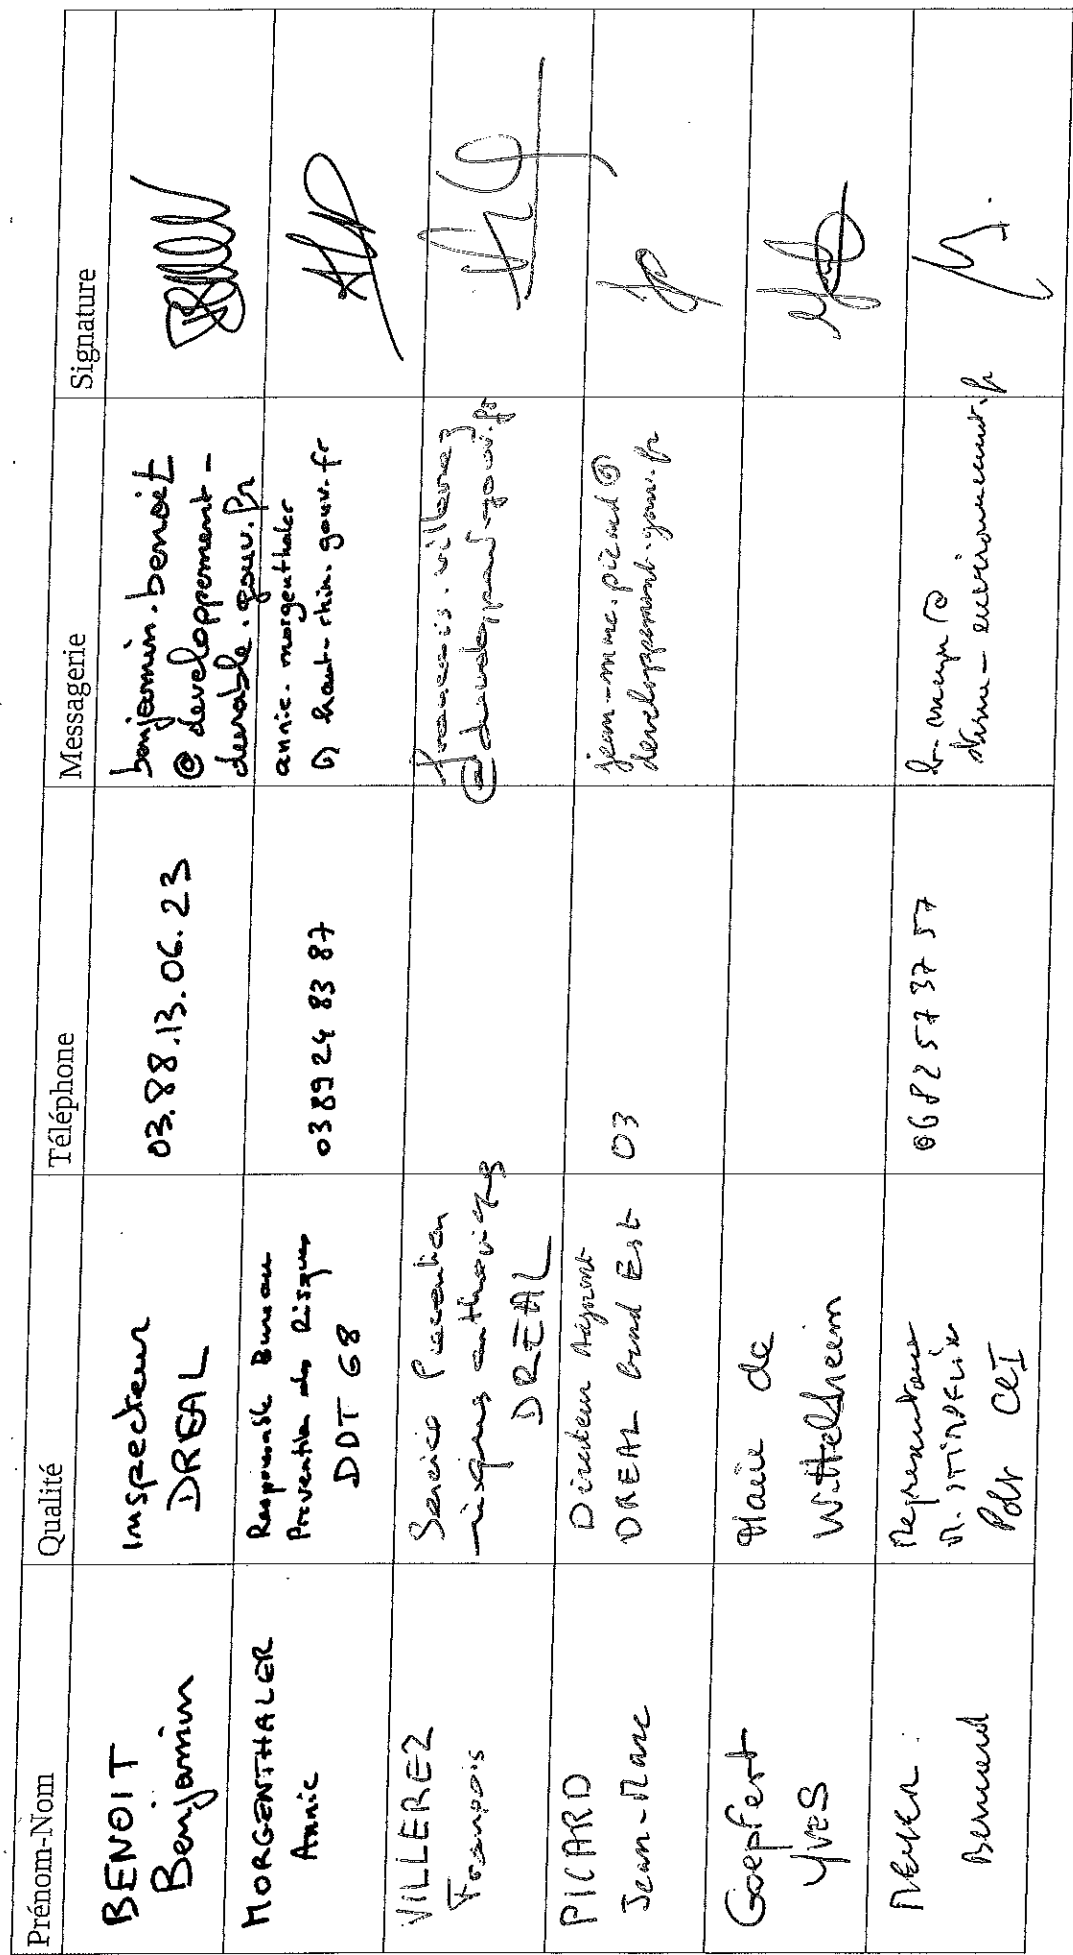 Prénom-Nom
Qualité
Téléphone
Messagerie
Signature
BENOIT
Benjamin
Inspecteur
DREAL
03.88.13.06.23
benjamin.benoit
@ developpement-
durable.gouv.fr
MORGENTHALER
Annie
Responsable Bureau
Prévention des Risques
DDT 68
03 89 24 83 87
annie.morgenthaler
@ haut-rhin.gouv.fr
VILLEREZ
François
Service Prévention
risques anthropiques
DREAL
francois.villerez
PICARD
Jean-Marc
Directeur Adjoint
DREAL Grand Est
03
jean-marc.picard@
developpement.gouv.fr
Goepfert
YVES
Maire de
Wittelsheim
Bernard
Représentant
06 82 57 37 57
environnement.fr